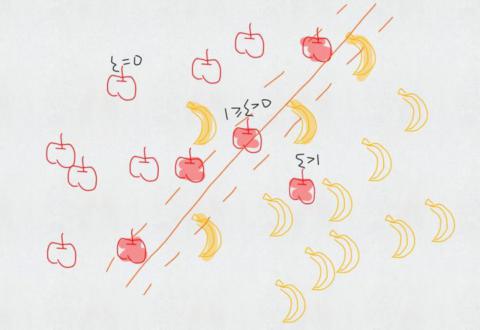 ξ=0
1≥ξ>0
ξ>1